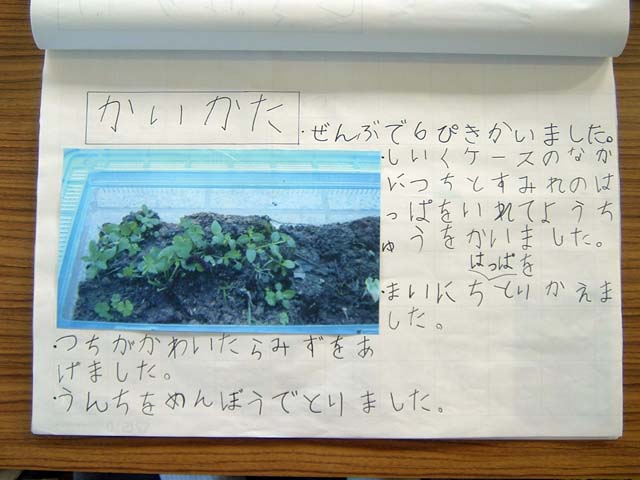 かいかた
・ぜんぶで6ぴきかいました。
・しいくケースのなか
につちとすみれのは
っぱをいれてようち
ゅうをかいました。
はっぱを
・まいにちとりかえま
した。
・つちがかわいたらみずをあ
げました。
・うんちをめんぼうでとりました。